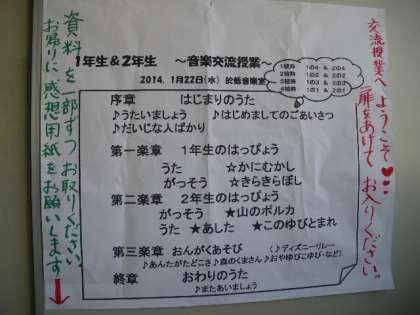 交流授業へ ようこそ♥♥
扉をあけて お入りください。
1年生＆2年生 ～音楽交流授業～
2014. 1月22日(水) 於低音楽室
1校時 1の4 & 2の4
2校時 1の2 & 2の2
3校時 1の3 & 2の3
4校時 1の1 & 2の1
序章 はじまりのうた
♪うたいましょう ♪はじめましてのごあいさつ
♪だいじな人ばかり
第一楽章 1年生のはっぴょう
うた ☆かにむかし
がっそう ☆きらきらぼし
第二楽章 2年生のはっぴょう
がっそう ★山のポルカ
うた ★あした ★このゆびとまれ
第三楽章 おんがくあそび (♪ディズニーリレー
♪あんたがたどこさ ♪森のくまさん ♪おやゆびこゆび・など)
終章 おわりのうた
♪またあいましょう
資料を一部ずつ お取りください。
お帰りに、感想用紙をお願いします→